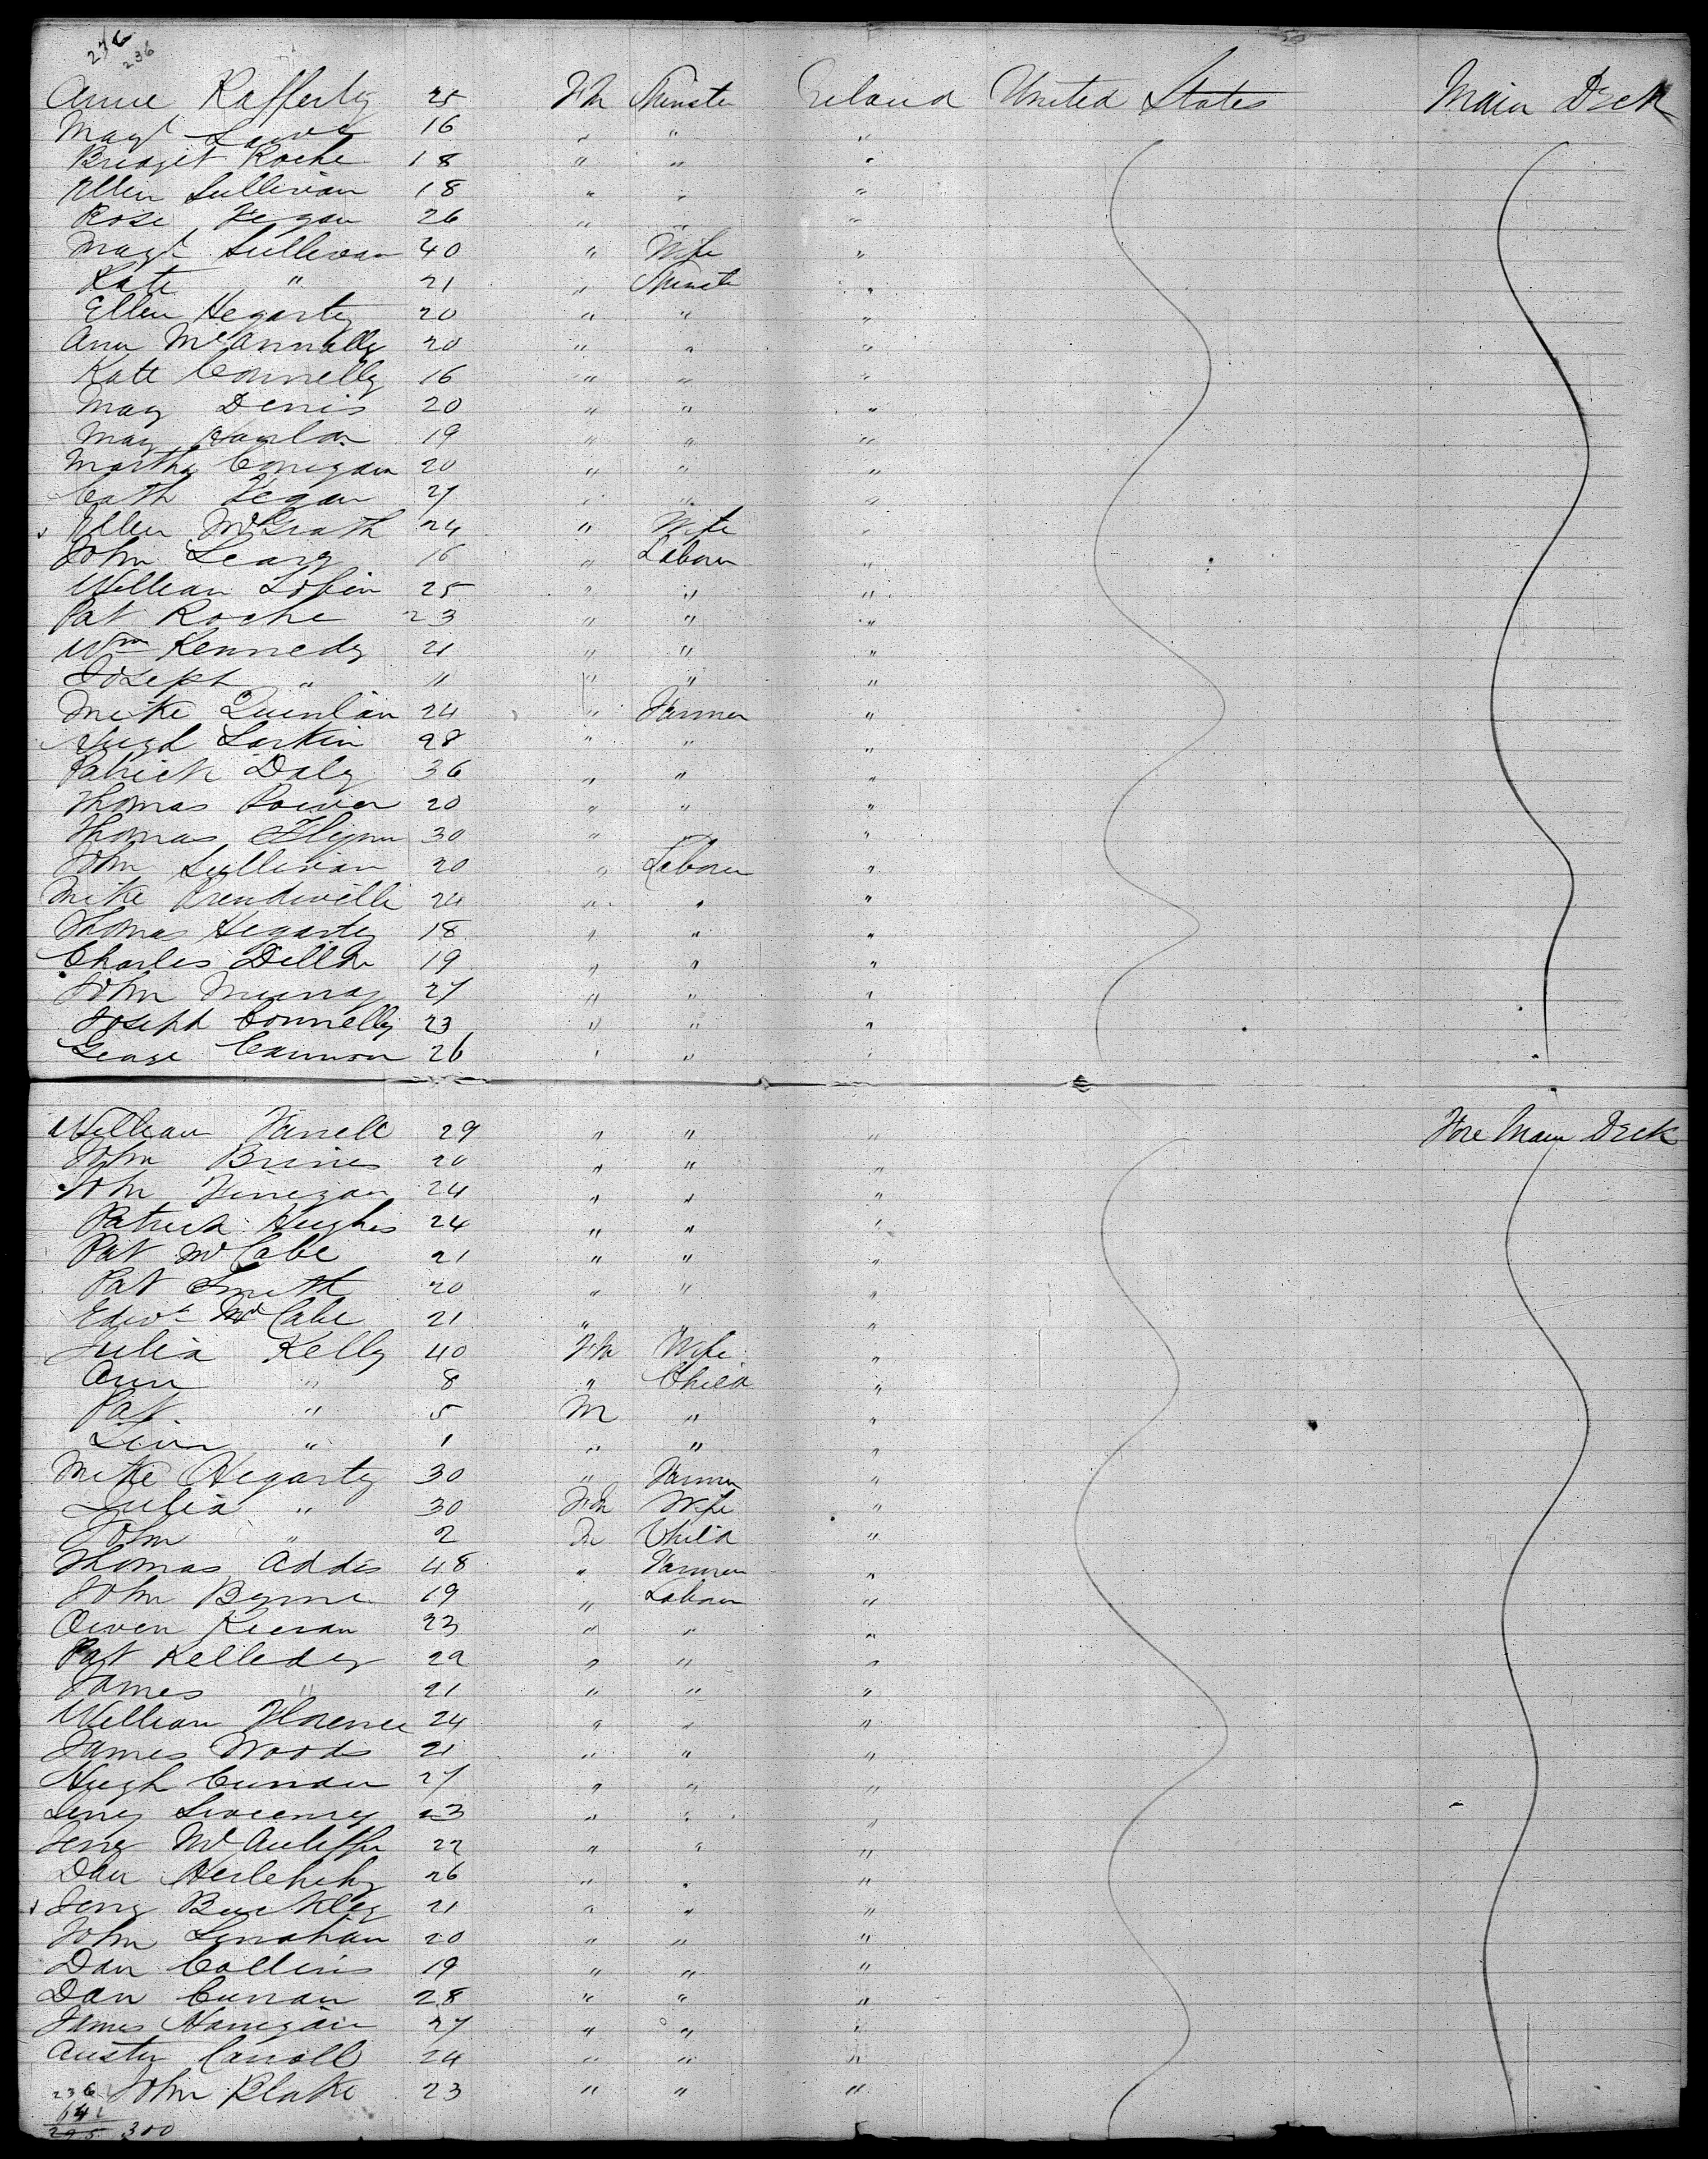 236 236
Annie Rafferty 25 Fm Spinster Ireland United States Main Deck
Magt 16 " " "
Bridget Roche 18 " " "
Ellen Sullivan 18 " " "
Rose Kegan 26 " " "
Magt Sullivan 40 " Wife "
Kate " 21 " Spinste "
Ellen Hegarty 20 " " "
Ann McAnnally 20 " " "
Kate Connelly 16 " " "
May Denis 20 " " "
May Hanlon 19 " " "
Martha Corrigan 20 " " "
Cath Kegan 27 " " "
Ellen McGrath 24 " Wife "
John Leary 16 " Labour "
William Tobin 25 " " "
Pat Roche 23 " " "
Wm Kennedy 21 " " "
Joseph " " " " "
Mike Quinlan 24 " Farmer "
Larkin 28 " " "
Patrick Daly 36 " " "
Thomas Power 20 " " "
Thomas Flynn 30 " " "
John Sullivan 20 " Labour "
Mike Prendeville 24 " " "
Thomas Hegarty 18 " " "
Charles Dillon 19 " " "
John Murray 27 " " "
Joseph Connelly 23 " " "
George Cannon 26 " " "
William Farrell 29 " " " Fore Main Deck
John Brines 20 " " "
Joh Finnegan 24 " " "
Patrick Hughes 24 " " "
Pat McCabe 21 " " "
Pat Smith 20 " " "
Edwd McCabe 21 " " "
Julia Kelly 40 Fm Wife "
Ann " 8 " Child "
Pat " 5 M " "
" 1 " " "
Mike Hegarty 30 " Farmer "
Julia " 30 Fm Wife "
John " 2 M Child "
Thomas Addis 48 " Farmer "
John Byrne 19 " Labour "
Owen Kieran 23 " " "
Pat Kelledy 22 " " "
James " 21 " " "
William Florence 24 " " "
James Woods 21 " " "
Hugh Curran 27 " " "
Jerry Sweeney 23 " " "
Jerry McAuliffe 22 " " "
Dan Herlehihy 26 " " "
Jerry Buckley 21 " " "
John Lenahan 20 " " "
Dan Collins 19 " " "
Dan Curran 28 " " "
James Hannigan 27 " " "
Austin Carroll 24 " " "
236 John Blake 23 " " "
64
295 300